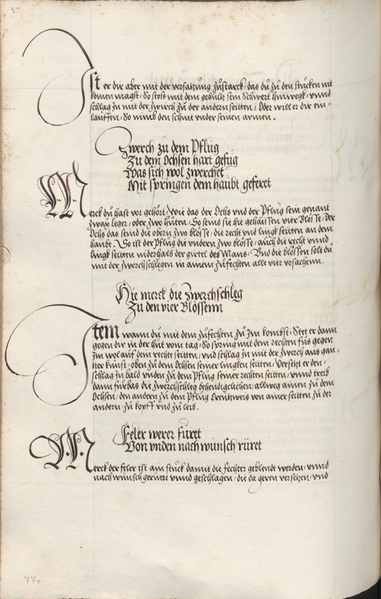 Ist er dir aber mit der versatzung zu starck, das du zu den stucken nit
komen magst, So stoß mit dem gehültz sein schwert hinwegk, vnnd
schlag zu mit der zwirch zu der andern seitten, Oder will er dir ein-
lauffen, So nimb den schnit vnder seinen armen.
Zwerch zu dem Pflug
Zu dem Ochsen hart gefug
Was sich wol zwerchet
Mit springen dem haubt gefert
Merck du hast vor gehört wie das der Ochs vnd der Pflug sein genant
zway leger, oder zwo hüten, So seind sie hie gehaissen vier Blösse, der
Ochs das seind die obern zwo blösse, die recht vnd lingk seitten an dem
haubt, So ist der Pflug die vndern zwo blösse, auch die recht vnnd
lingk seitten vnderhalb der gürtel des Mans, Vnd die blössen solt du
mit der zwerchschlegen in ainem zufechten alle vier ersuchenn.
Hie merck die Zwerchschleg
Zu den vier Blossenn
Item wann du mit dem zufechten zu Im kombst, Stet er dann
gegen dir in der hut vom tag, So spring mit dem rechten fuß gegen
Im wol auf dein rechte seitten, vnd schlag In mit der zwerch aus gan-
tzer kunst, oben zu dem Ochsen seiner lingken seitten, Versetzt er den
schlag, so bald vnden zu dem Pflug seiner rechten seitten, vnnd treib
dann fürbas die zwerchschleg behendigclichen, alleweg ainen zu dem
Ochsen, den andern zu dem Pflug Creutzweis von ainer seitten zu der
andern, zu kopff vnnd zu leib.
Feler verer füret
Von vnden nach wünsch rüret
Merck der feler ist ain stuck damit die fechter geblendt werden, vnnd
nach wunsch gerürt vnnd geschlagen, die da gern versetzen, vnd
77v